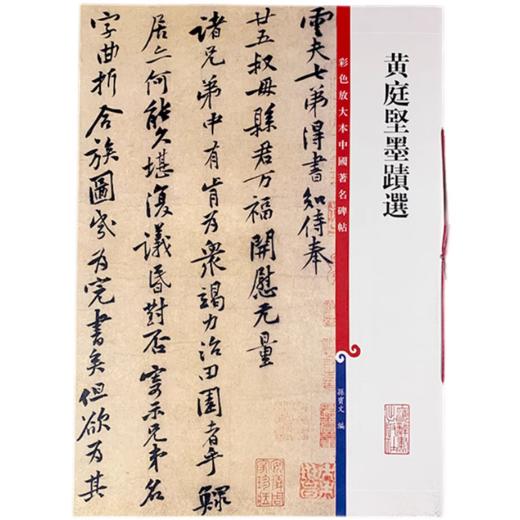 黄庭堅墨蹟選
彩色放大本中國著名碑帖
孫寶文 編
雲夫七弟得書知侍奉
廿五叔母縣君万福開慰无量
諸兄弟中有肯为衆竭力治田園者乎鰥
居亦何能久堪復議昏對否寄示兄弟名
字曲折合族圖歲为完書矣但欲为其